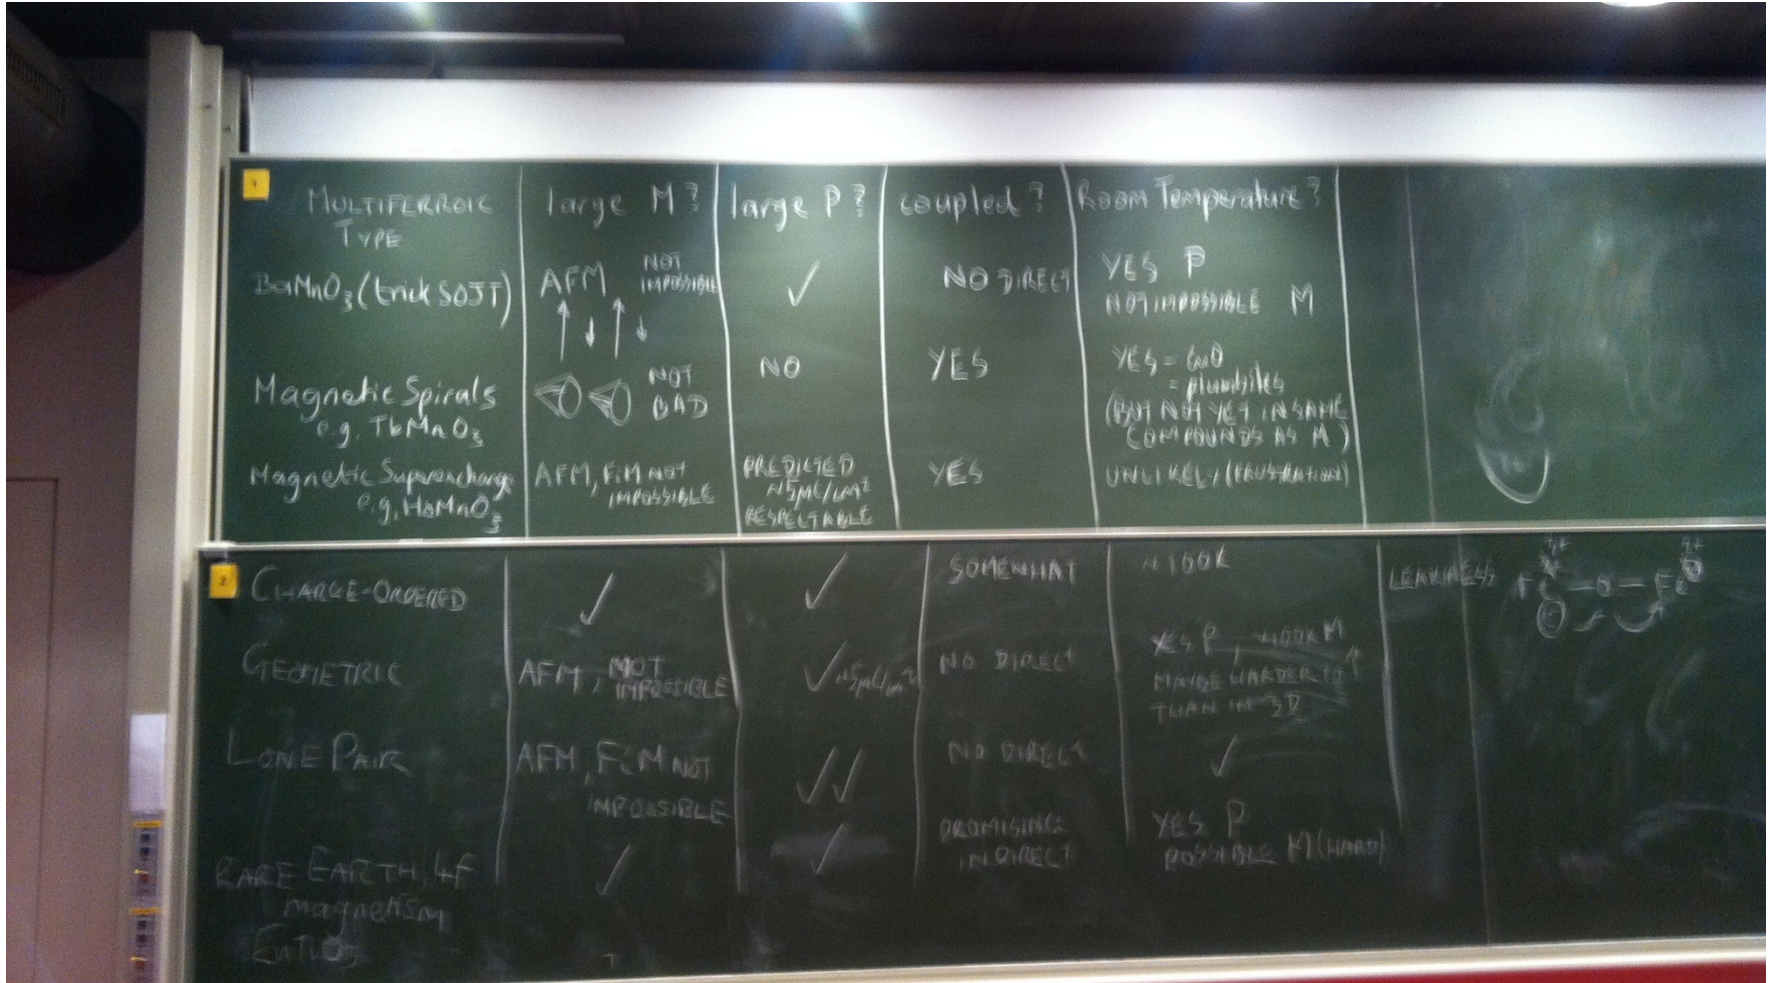 1
MULTIFERROIC TYPE | large M? | large P? | coupled? | Room Temperature?
BaMnO3 (trick SOJT) | AFM NOT IMPOSSIBLE | ✓ | NO DIRECT | YES P NOT IMPOSSIBLE M
Magnetic Spirals e.g. TbMnO3 | NOT BAD | NO | YES | YES = CuO = plumbites (BUT NOT YET IN SAME COMPOUNDS AS M)
Magnetic Superexchange e.g. HoMnO3 | AFM, FiM NOT IMPOSSIBLE | PREDICTED ~5μC/cm² RESPECTABLE | YES | UNLIKELY (FRUSTRATION)
2
CHARGE-ORDERED | ✓ | ✓ | SOMEWHAT | ~100K | LEAKINESS | Fe – O – Fe
GEOMETRIC | AFM, NOT IMPOSSIBLE | ✓ ~5μC/cm² | NO DIRECT | YES P, ~400K M MAYBE HARDER TO ↑ THAN IN 3D
LONE PAIR | AFM, FiM NOT IMPOSSIBLE | ✓✓ | NO DIRECT | ✓
RARE EARTH, 4f magnetism | ✓ | ✓ | PROMISING INDIRECT | YES P POSSIBLE M (HARD)
EuTiO3